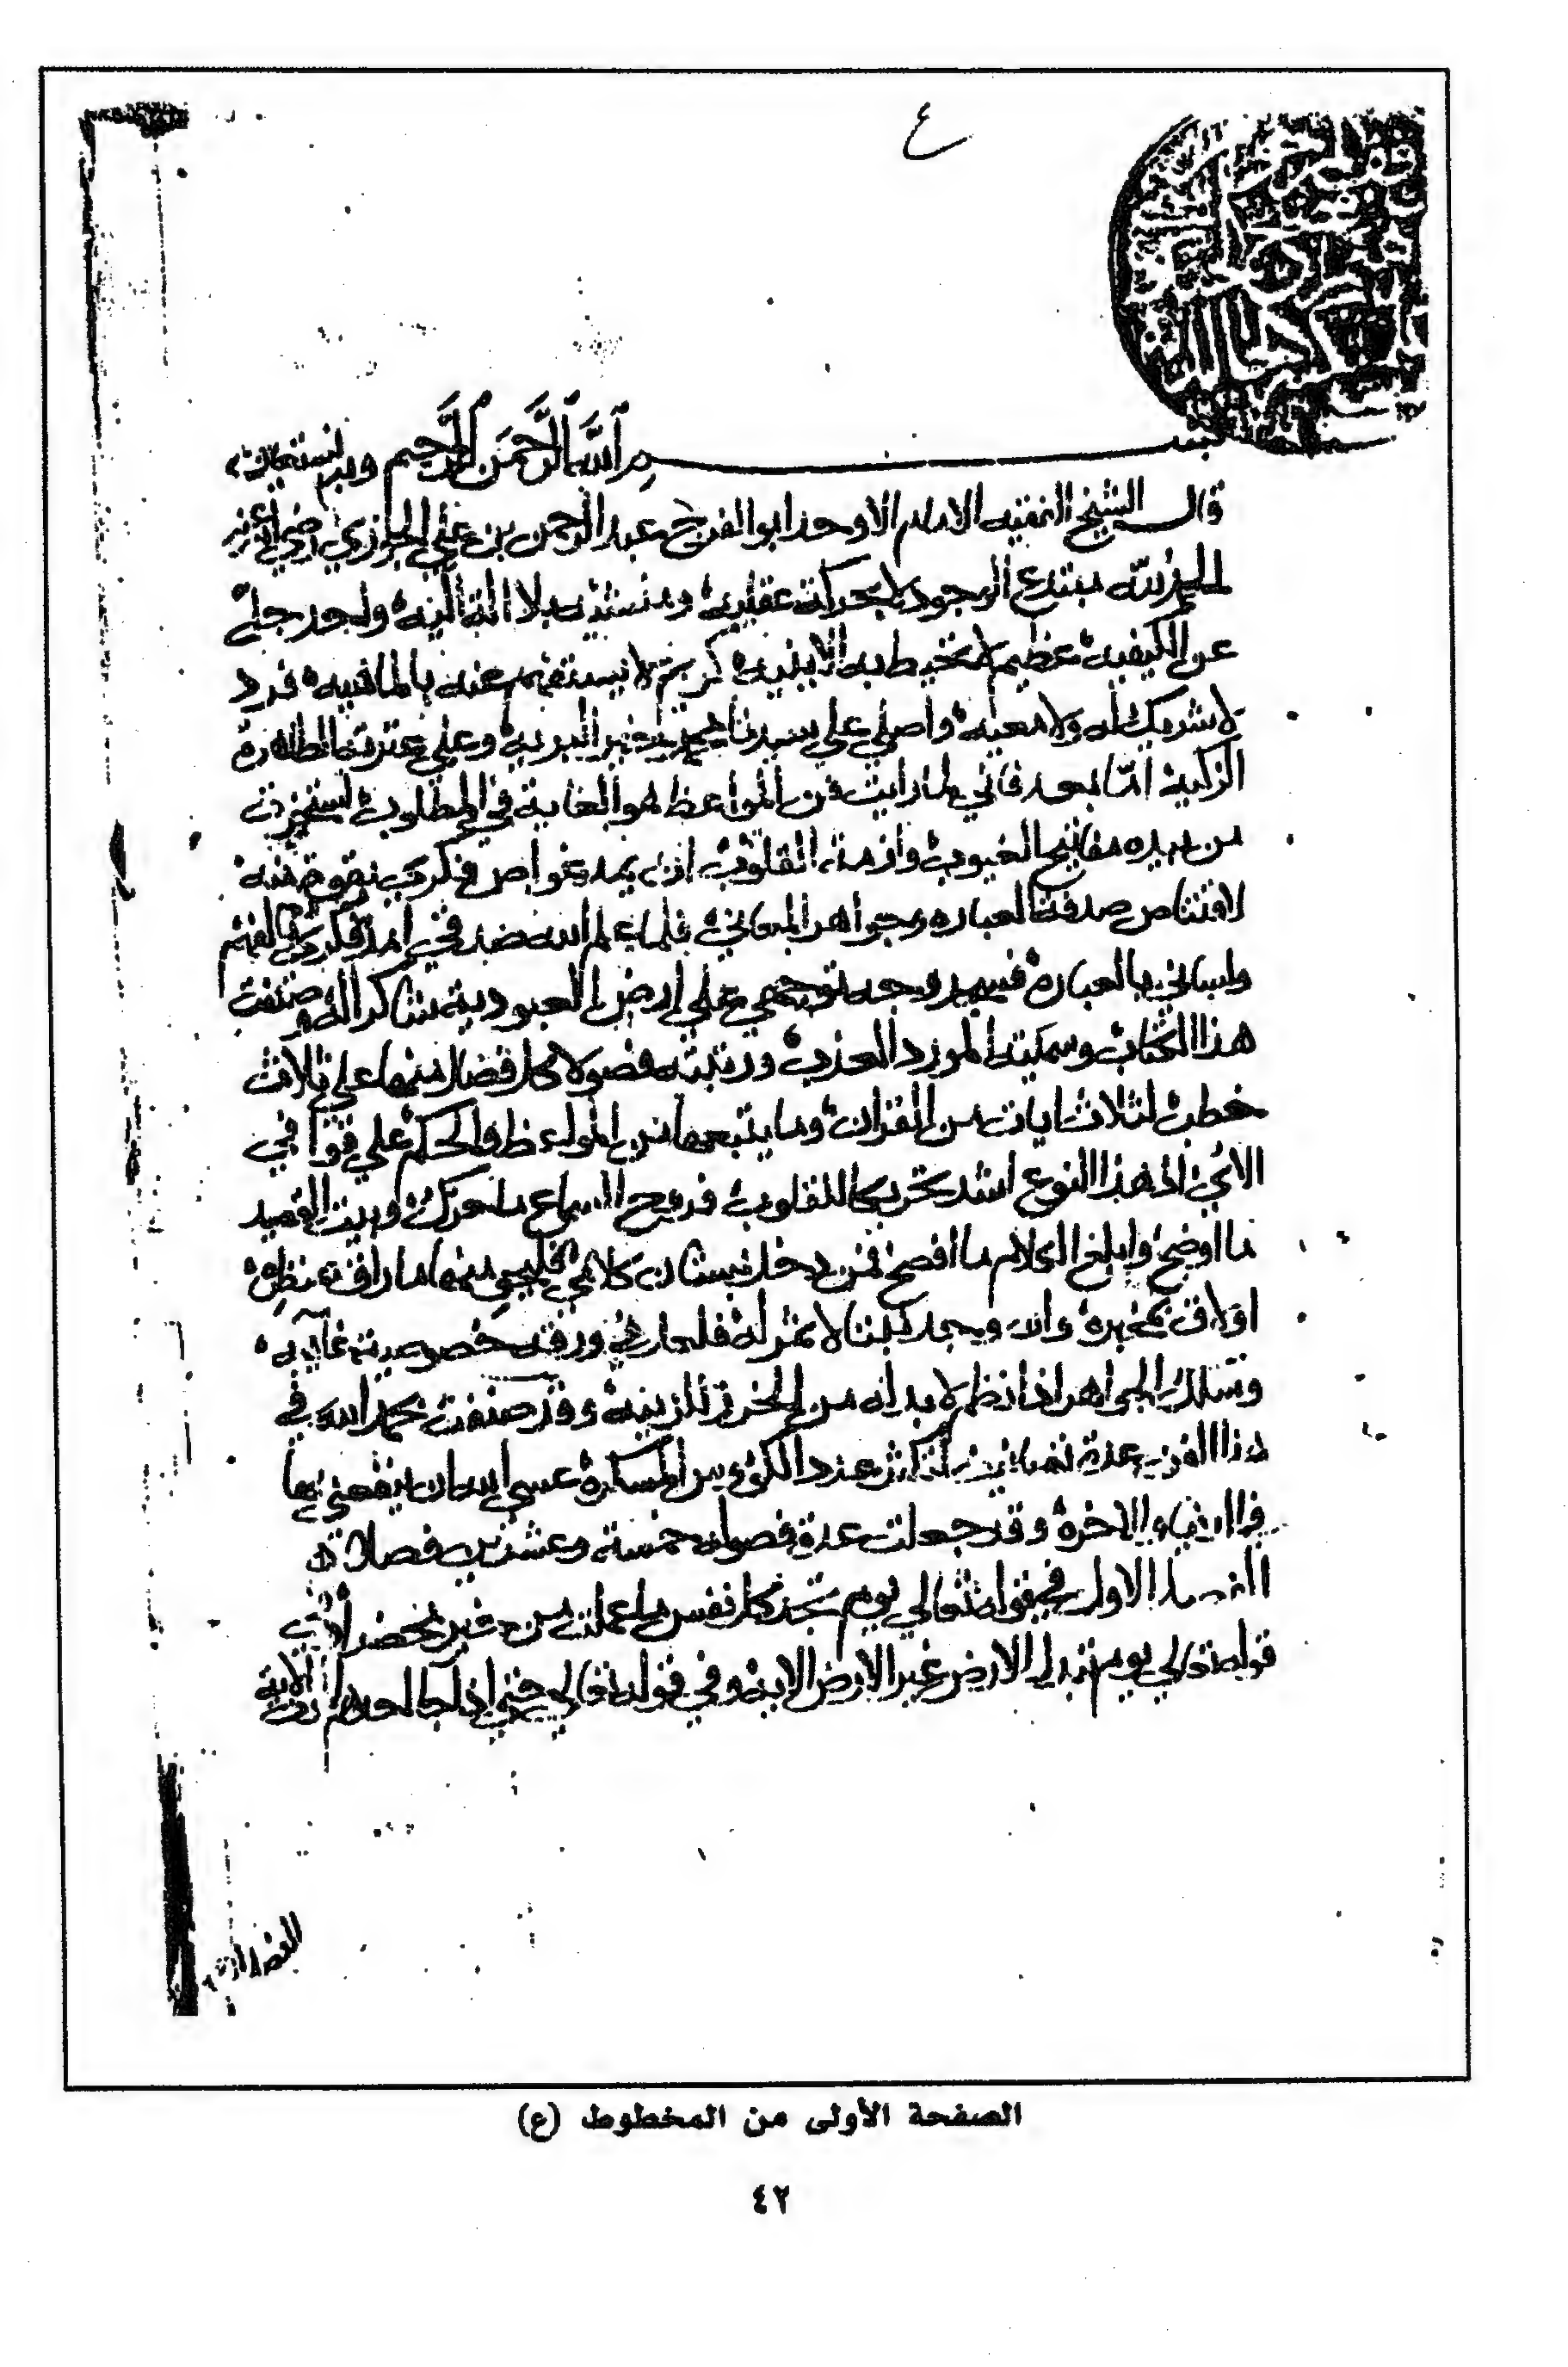 ٤
بسم الله الرحمن الرحيم وبه نستعين
قال الشيخ الفقيه الامام الاوحد ابو الفرج عبد الرحمن بن علي الجوزي رضي الله عنه
الحمد لله مبتدع الوجود لا بحركة عقلية ومنشيه بلا الة الية واحد جل
عن الكيفية عظيم لا تحيط به الاينية كريم لا يستفهم عنه بالماهية فرد
لا شريك له ولا معية واصلي على سيدنا محمد خير البرية وعلى عترته الطاهرة
الزكية اما بعد فاني لما رايت فن المواعظ هو الغاية في المطلوب استخرت
من بيده مفاتيح الغيوب وازمة القلوب ان يمد غواص فكري بقوة منه
لاقتناص صدف العبارة وجواهر المعاني فلما علم الله صدقي امد فكري بالفهم
ولساني بالعبارة فسجد وجه توجهي على ارض العبودية شاكرا لله وصنفت
هذا الكتاب وسميته المورد العذب ورتبته فصولا كل فصل منها على ثلاث
خطب لثلاث ايات من القران وما يتبعها من المواعظ والحكم على قوافي
الاي اذ هذا النوع اشد تحريكا للقلوب فروح السماع ما حرك وبيت القصيد
ما اوضح وابلغ الكلام ما افصح فمن دخل بستان كلامي فليجن منها ما راق بمنظره
اولاق بمخبره وان وجد نبتا لا ثمر له فلعارض ورقه خصوصية غايبه
وسلك الجواهر اذا نظم لا بد له من الخرز للزينة وقد صنفت بحمد الله في
هذا الفن عدة تصانيف عسى الله ان ينفعني بها
في الدنيا والاخرة وقد جعلت عدة فصوله خمسة وعشرين فصلا
الفصل الاول في قوله تعالى يوم تجد كل نفس ما عملت من خير محضرا وفي
قوله تعالى يوم تبدل الارض غير الارض الاية وفي قوله تعالى حتى اذا جا احدهم الموت الاية
الصفحة الأولى من المخطوط (ع)
٤٢